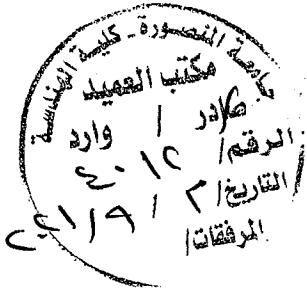 جامعة المنصورة - كلية الهندسة
مكتب العميد
صادر / وارد
الرقم / ٤٠١٢
التاريخ / ٢ / ٩ / ٢٠٢١
المرفقات /